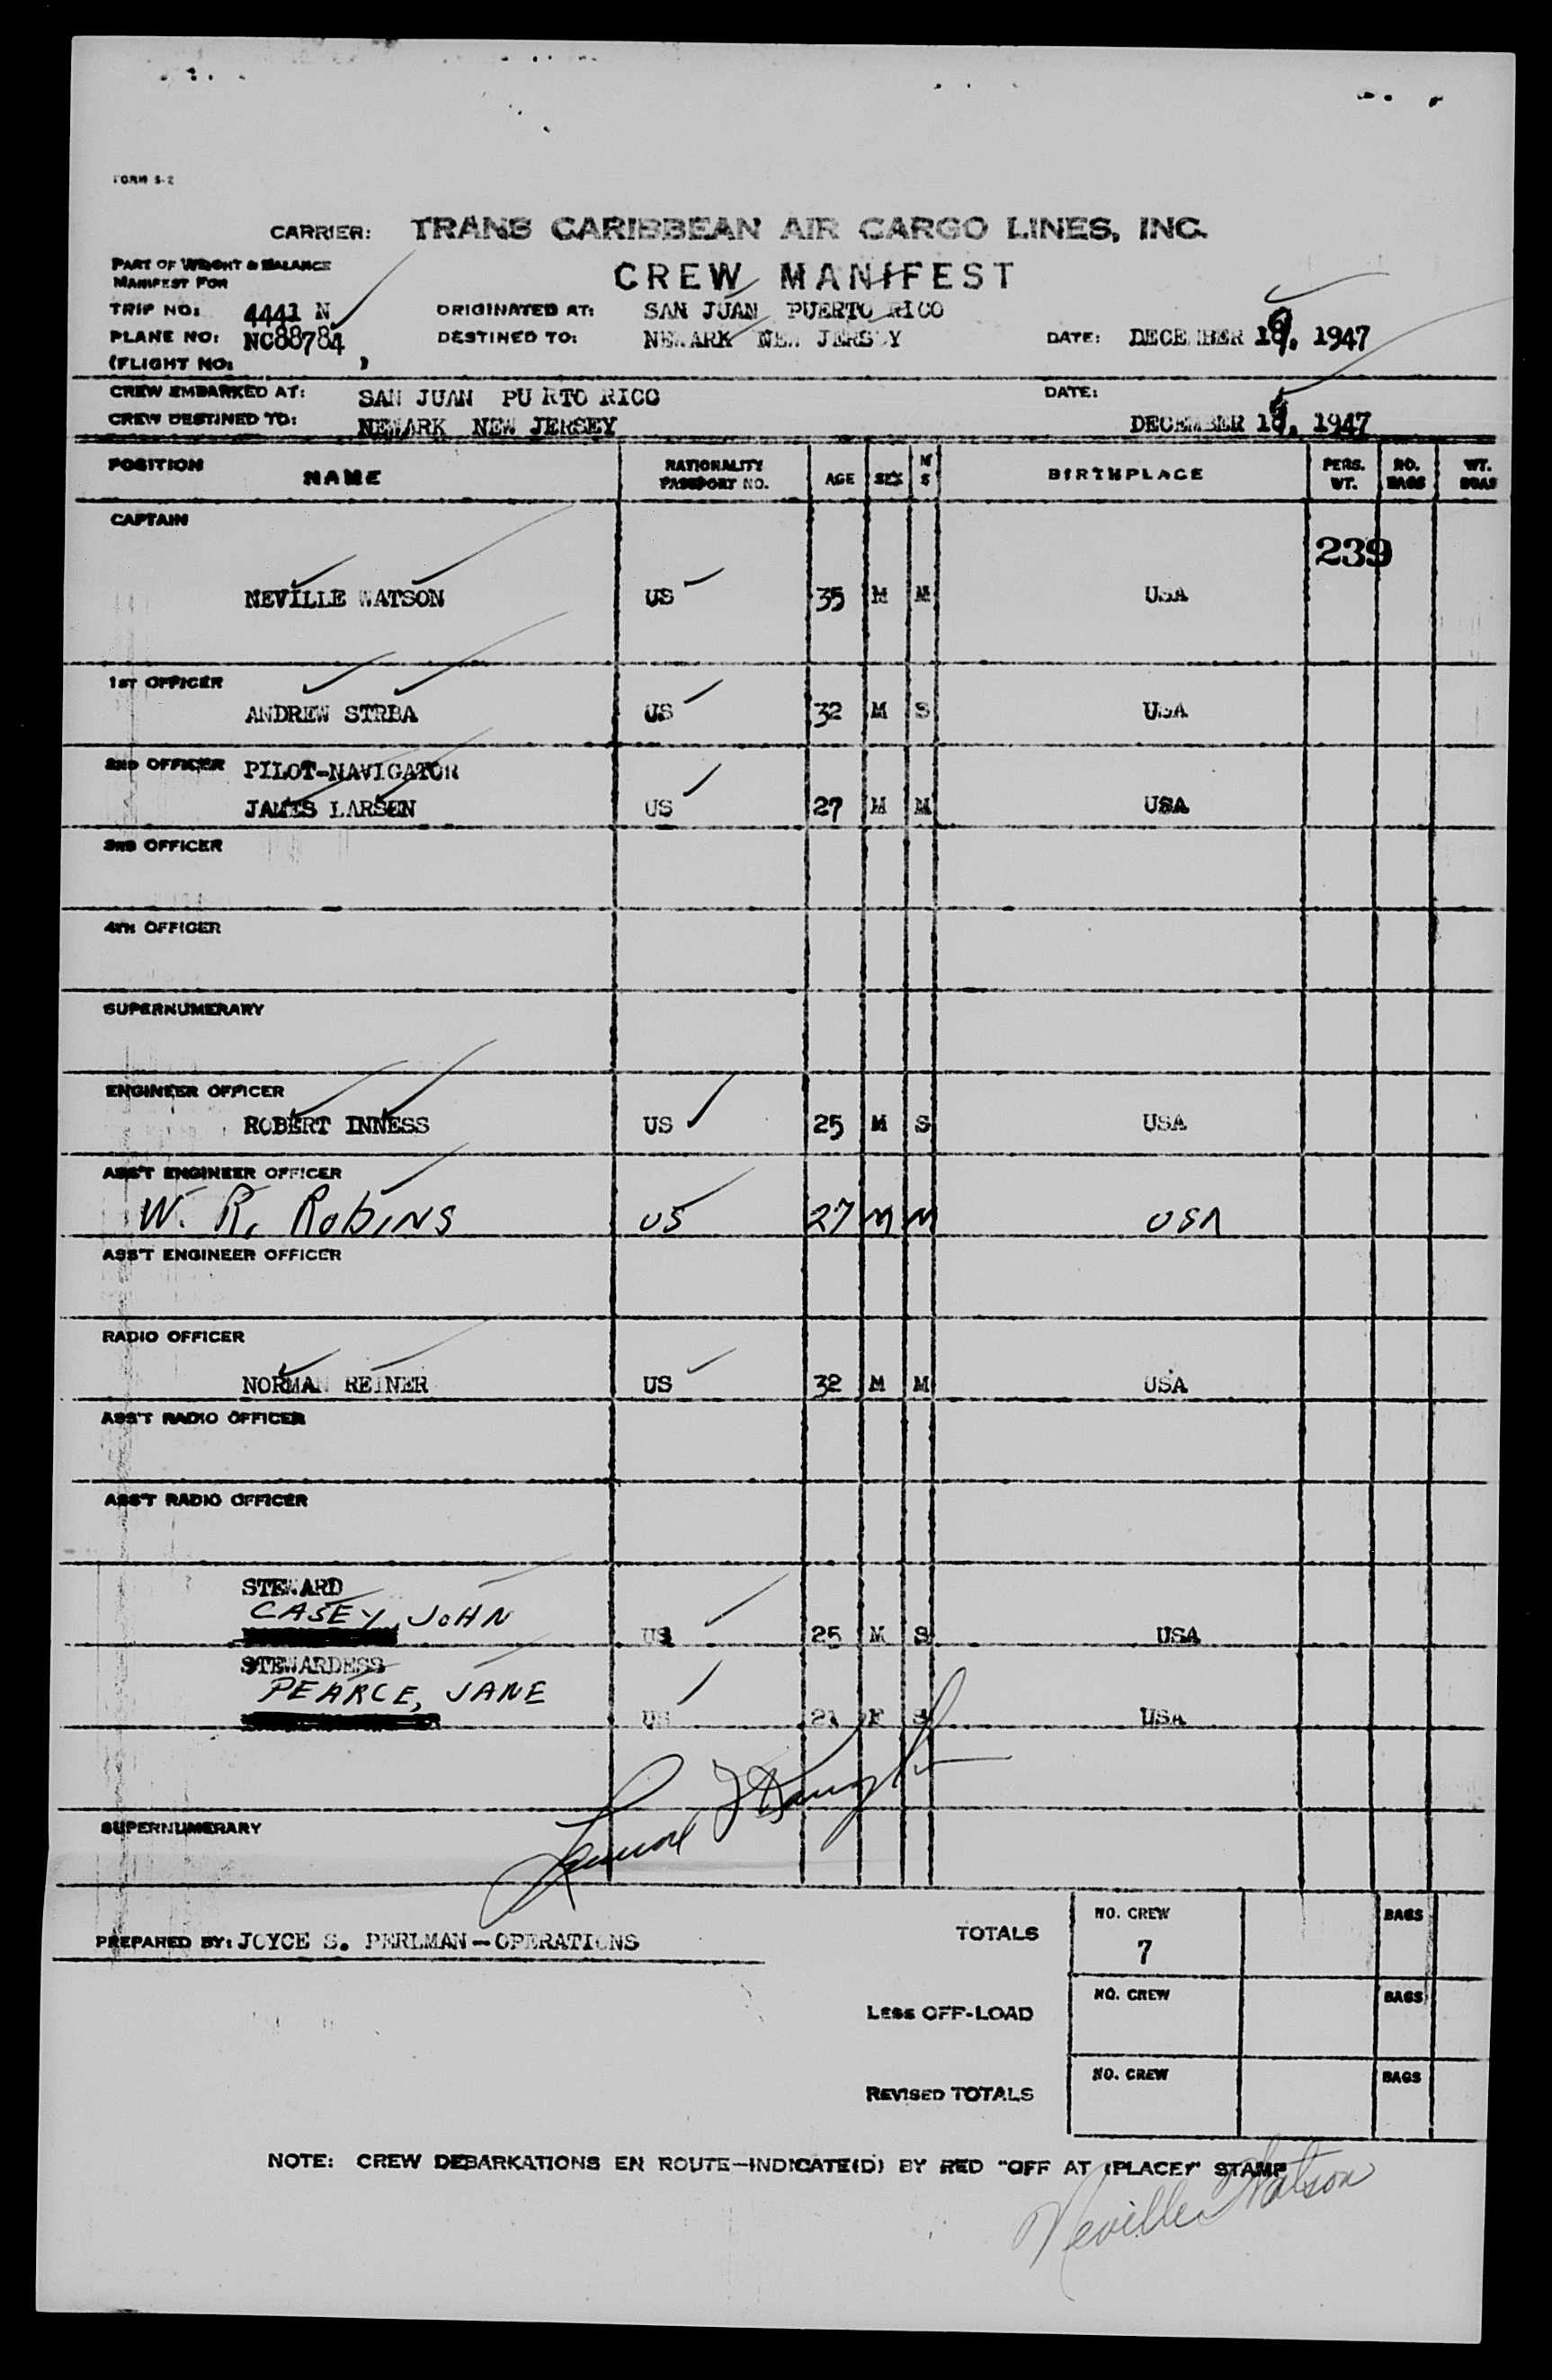 FORM S-2
CARRIER: TRANS CARIBBEAN AIR CARGO LINES, INC.
PART OF WEIGHT & BALANCE
MANIFEST FOR
CREW MANIFEST
TRIP NO: 4441 N ORIGINATED AT: SAN JUAN PUERTO RICO
PLANE NO: NC88784 DESTINED TO: NEWARK NEW JERSEY DATE: DECEMBER 1947
(FLIGHT NO: )
CREW EMBARKED AT: SAN JUAN PU RTO RICO DATE:
CREW DESTINED TO: NEWARK NEW JERSEY DECEMBER 1947
POSITION NAME NATIONALITY PASSPORT NO. AGE SEX M S BIRTHPLACE PERS. WT. NO. BAGS WT.
CAPTAIN
239
NEVILLE WATSON US 35 M M USA
1ST OFFICER
ANDREW STRBA US 32 M S USA
2ND OFFICER PILOT-NAVIGATOR
JAMES LARSEN US 27 M M USA
3RD OFFICER
4TH OFFICER
SUPERNUMERARY
ENGINEER OFFICER
ROBERT INNESS US 25 M S USA
ASS'T ENGINEER OFFICER
W. R. ROBINS US 27 M M USA
ASS'T ENGINEER OFFICER
RADIO OFFICER
NORMAN REINER US 32 M M USA
ASS'T RADIO OFFICER
ASS'T RADIO OFFICER
STEWARD
CASEY, JOHN US 25 M S USA
STEWARDESS
PEARCE, JANE US 21 F S USA
SUPERNUMERARY
PREPARED BY: JOYCE S. PERLMAN-OPERATIONS
TOTALS NO. CREW 7 BAGS
LESS OFF-LOAD NO. CREW BAGS
REVISED TOTALS NO. CREW BAGS
NOTE: CREW DEBARKATIONS EN ROUTE—INDICATE(D) BY RED "OFF AT (PLACE)" STAMP
Neville Watson